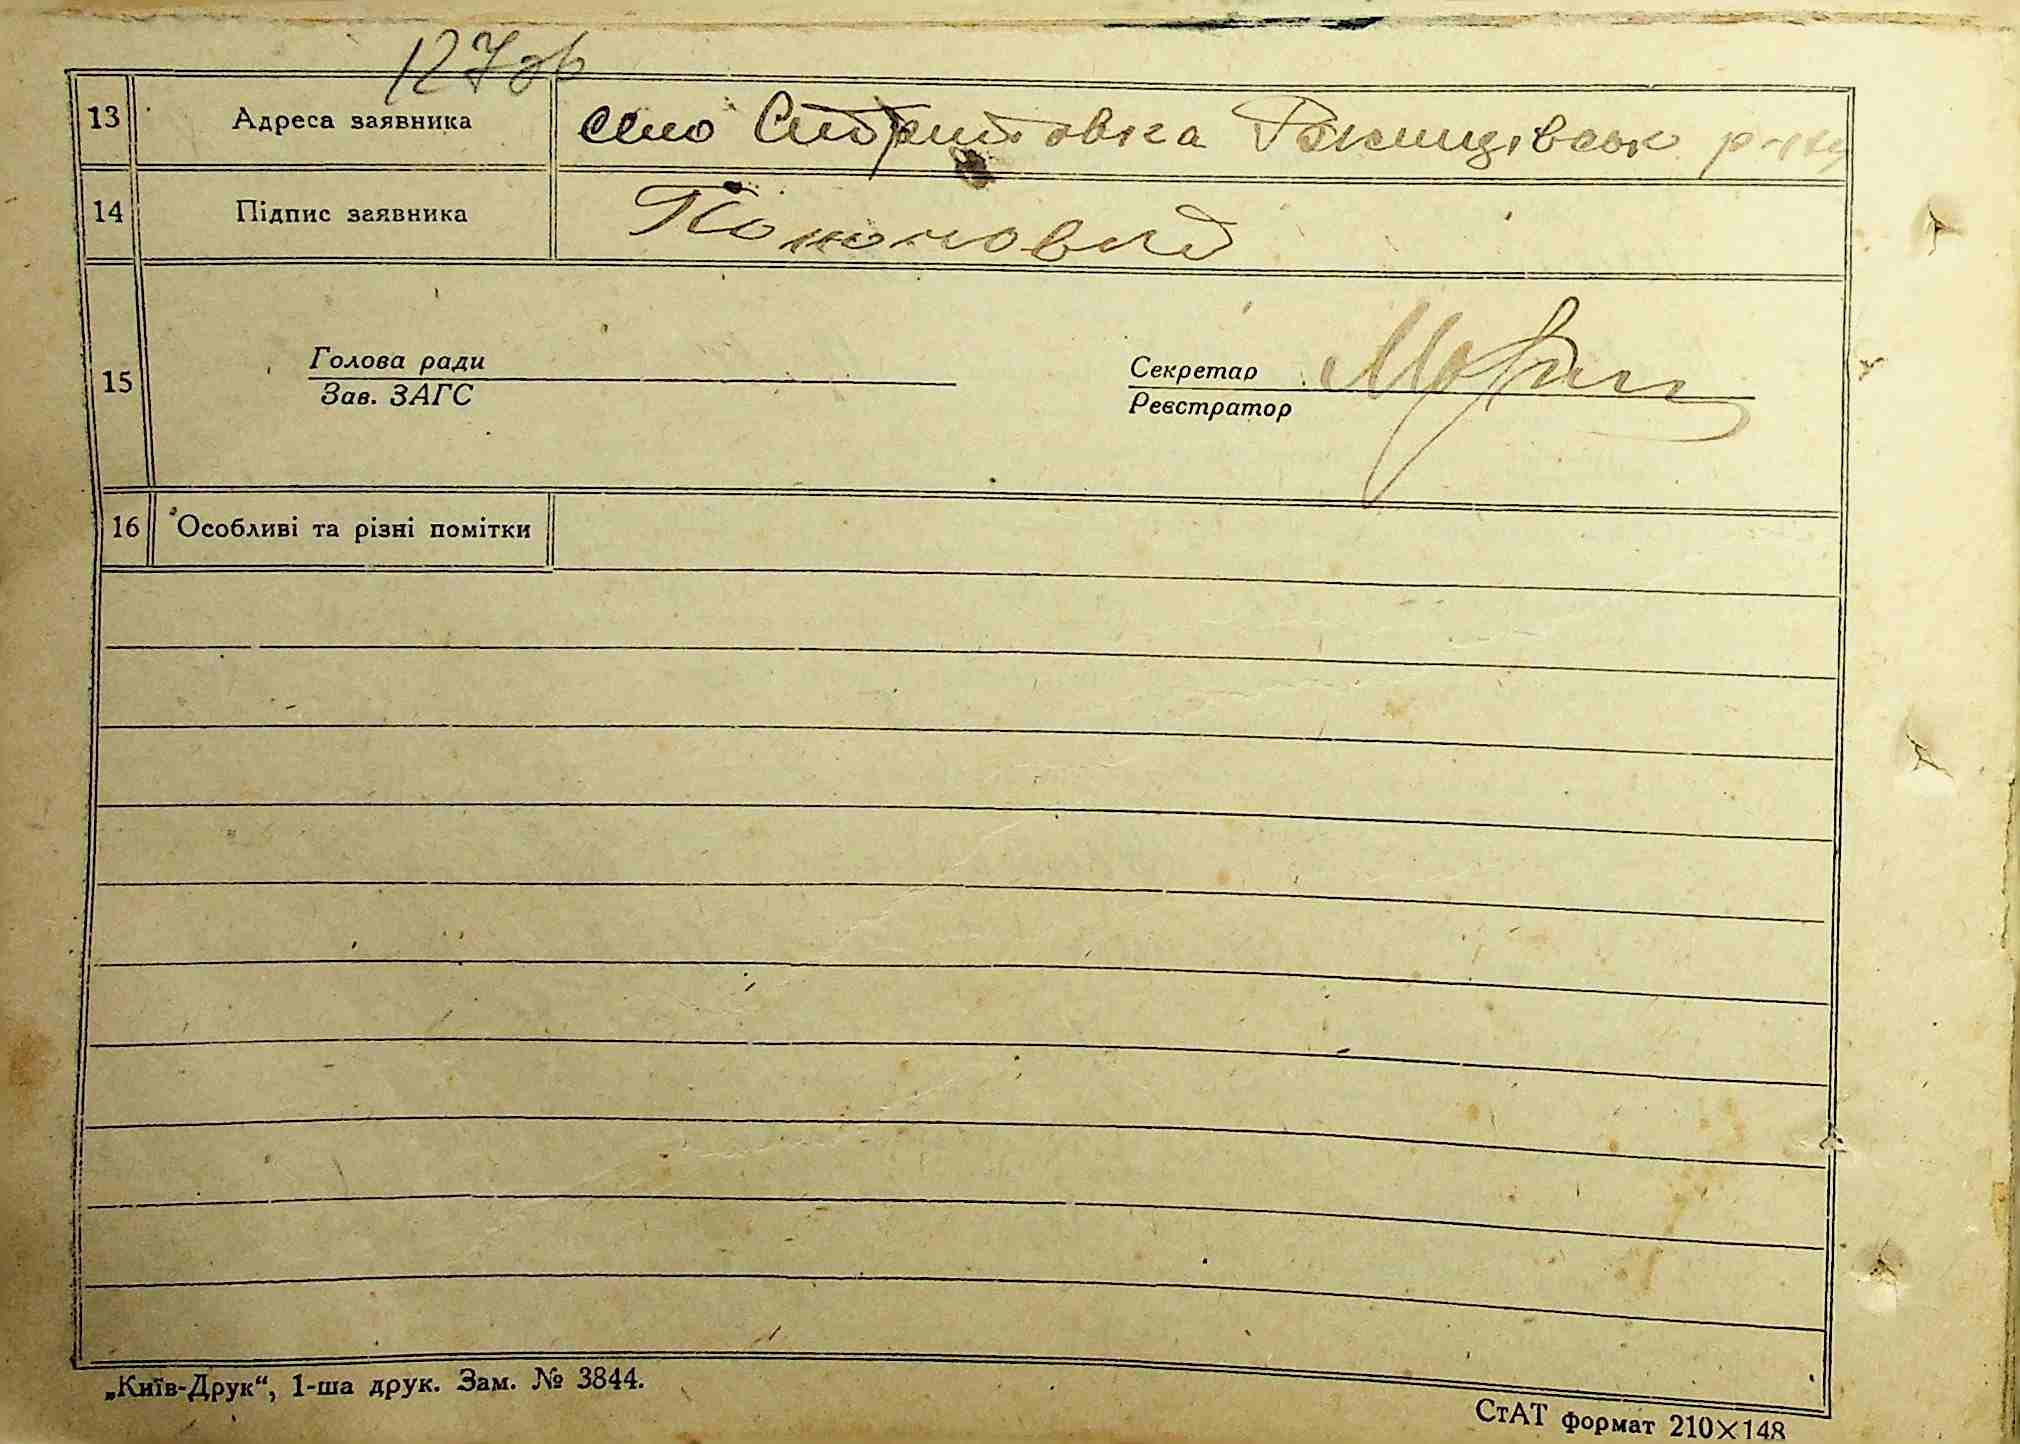 127об
13 Адреса заявника село Стритовка Ржищівськ р-ну
14 Підпис заявника Кононовид
15 Голова ради Секретар
Зав. ЗАГС Реєстратор
16 Особливі та різні помітки
„Київ-Друк“, 1-ша друк. Зам. № 3844.
СтАТ формат 210×148